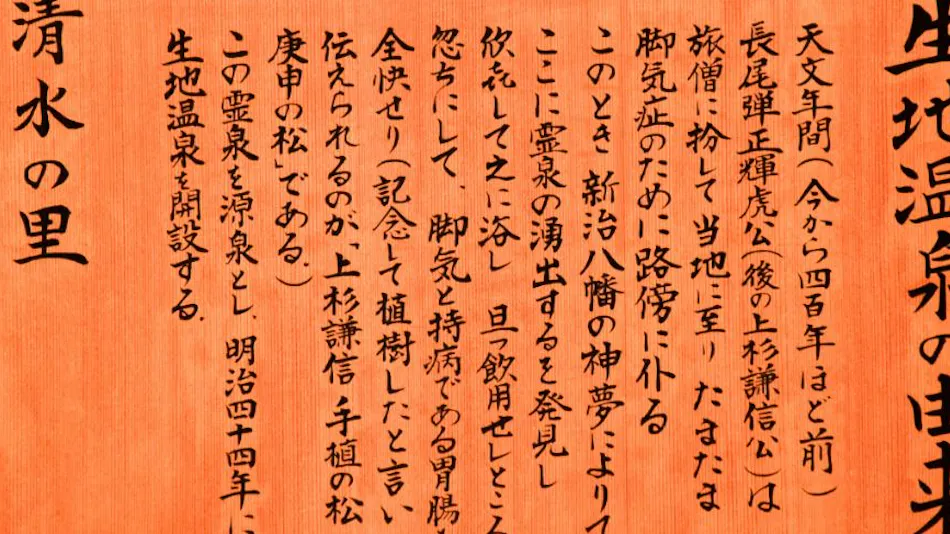 生地温泉の由来
天文年間(今から四百年ほど前)
長尾弾正輝虎公(後の上杉謙信公)は
旅僧に扮して当地に至り たまたま
脚気症のために路傍に仆る
このとき 新治八幡の神夢によりて
ここに霊泉の湧出するを発見し
欣㐂して之に浴し 旦つ飲用せしところ
忽ちにして、脚気と持病である胃腸も
全快せり(記念して植樹したと言い
伝えられるのが、「上杉謙信 手植の松
庚申の松」である。)
この霊泉を源泉とし、明治四十四年に
生地温泉を開設する。
清水の里